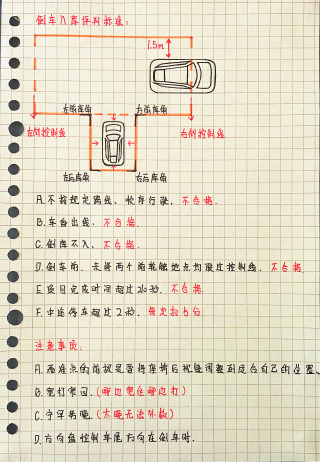 倒车入库评判标准:
1.5m
左前库角
右前库角
左侧控制线
右侧控制线
左后库角
右后库角
A.不按规定路线、顺序行驶,不合格.
B.车身出线,不合格.
C.倒库不入,不合格.
D.倒车前,未将两个前轮触地点均驶过控制线,不合格
E.项目完成时间超过210秒,不合格.
F.中途停车超过2秒,每次扣5分
注意事项:
A.两难点的前提是要将座椅后视镜调整到适合自己的位置、
B.宽打窄回.(哪边宽往哪边打)
C.宁早勿晚.(太晚无法补救)
D.方向盘控制车尾方向在倒车时.